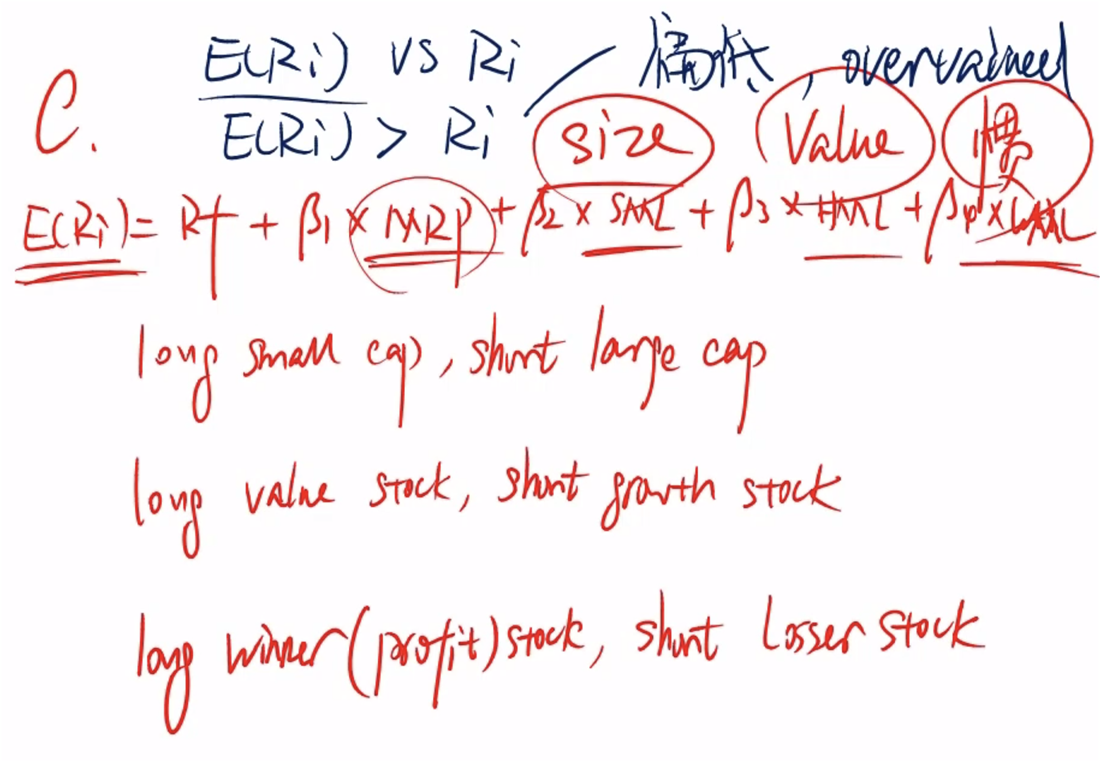 E(Ri) vs Ri
偏低, overvalued
C.
E(Ri) > Ri
size Value 惯
E(Ri) = Rf + β1 × MRP + β2 × SML + β3 × HML + β4 × WML
long small cap, short large cap
long value stock, short growth stock
long winner (profit) stock, short losser stock